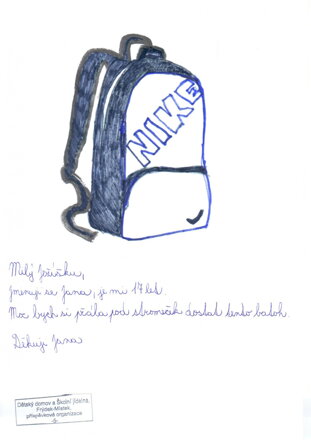 NIKE
Milý Ježíšku,
jmenuji se Jana, je mi 17 let.
Moc bych si přála pod stromeček dostat tento batoh.
Děkuji Jana
Dětský domov a Školní jídelna,
Frýdek-Místek,
příspěvková organizace
-5-